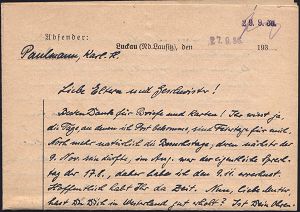 29.9.36.
Absender:
Luckau (Nd. Lausitz), den 27.9.36. 193
Paulmann, Karl. K.
Liebe Eltern und Geschwister!
Besten Dank für Briefe und Karten! Ihr wisst ja,
die Tage, an denen ich Post bekomme, sind Feiertage für mich.
Noch mehr natürlich die Besuchstage, deren nächster der
9. Nov. sein dürfte, im Aug. war der eigentliche Sprech-
tag der 17.8., daher habe ich den 9.11. errechnet.
Hoffentlich habt Ihr die Zeit. Nun, liebe Mutter,
hast Du Dich in Unterland gut erholt? Ist Dein